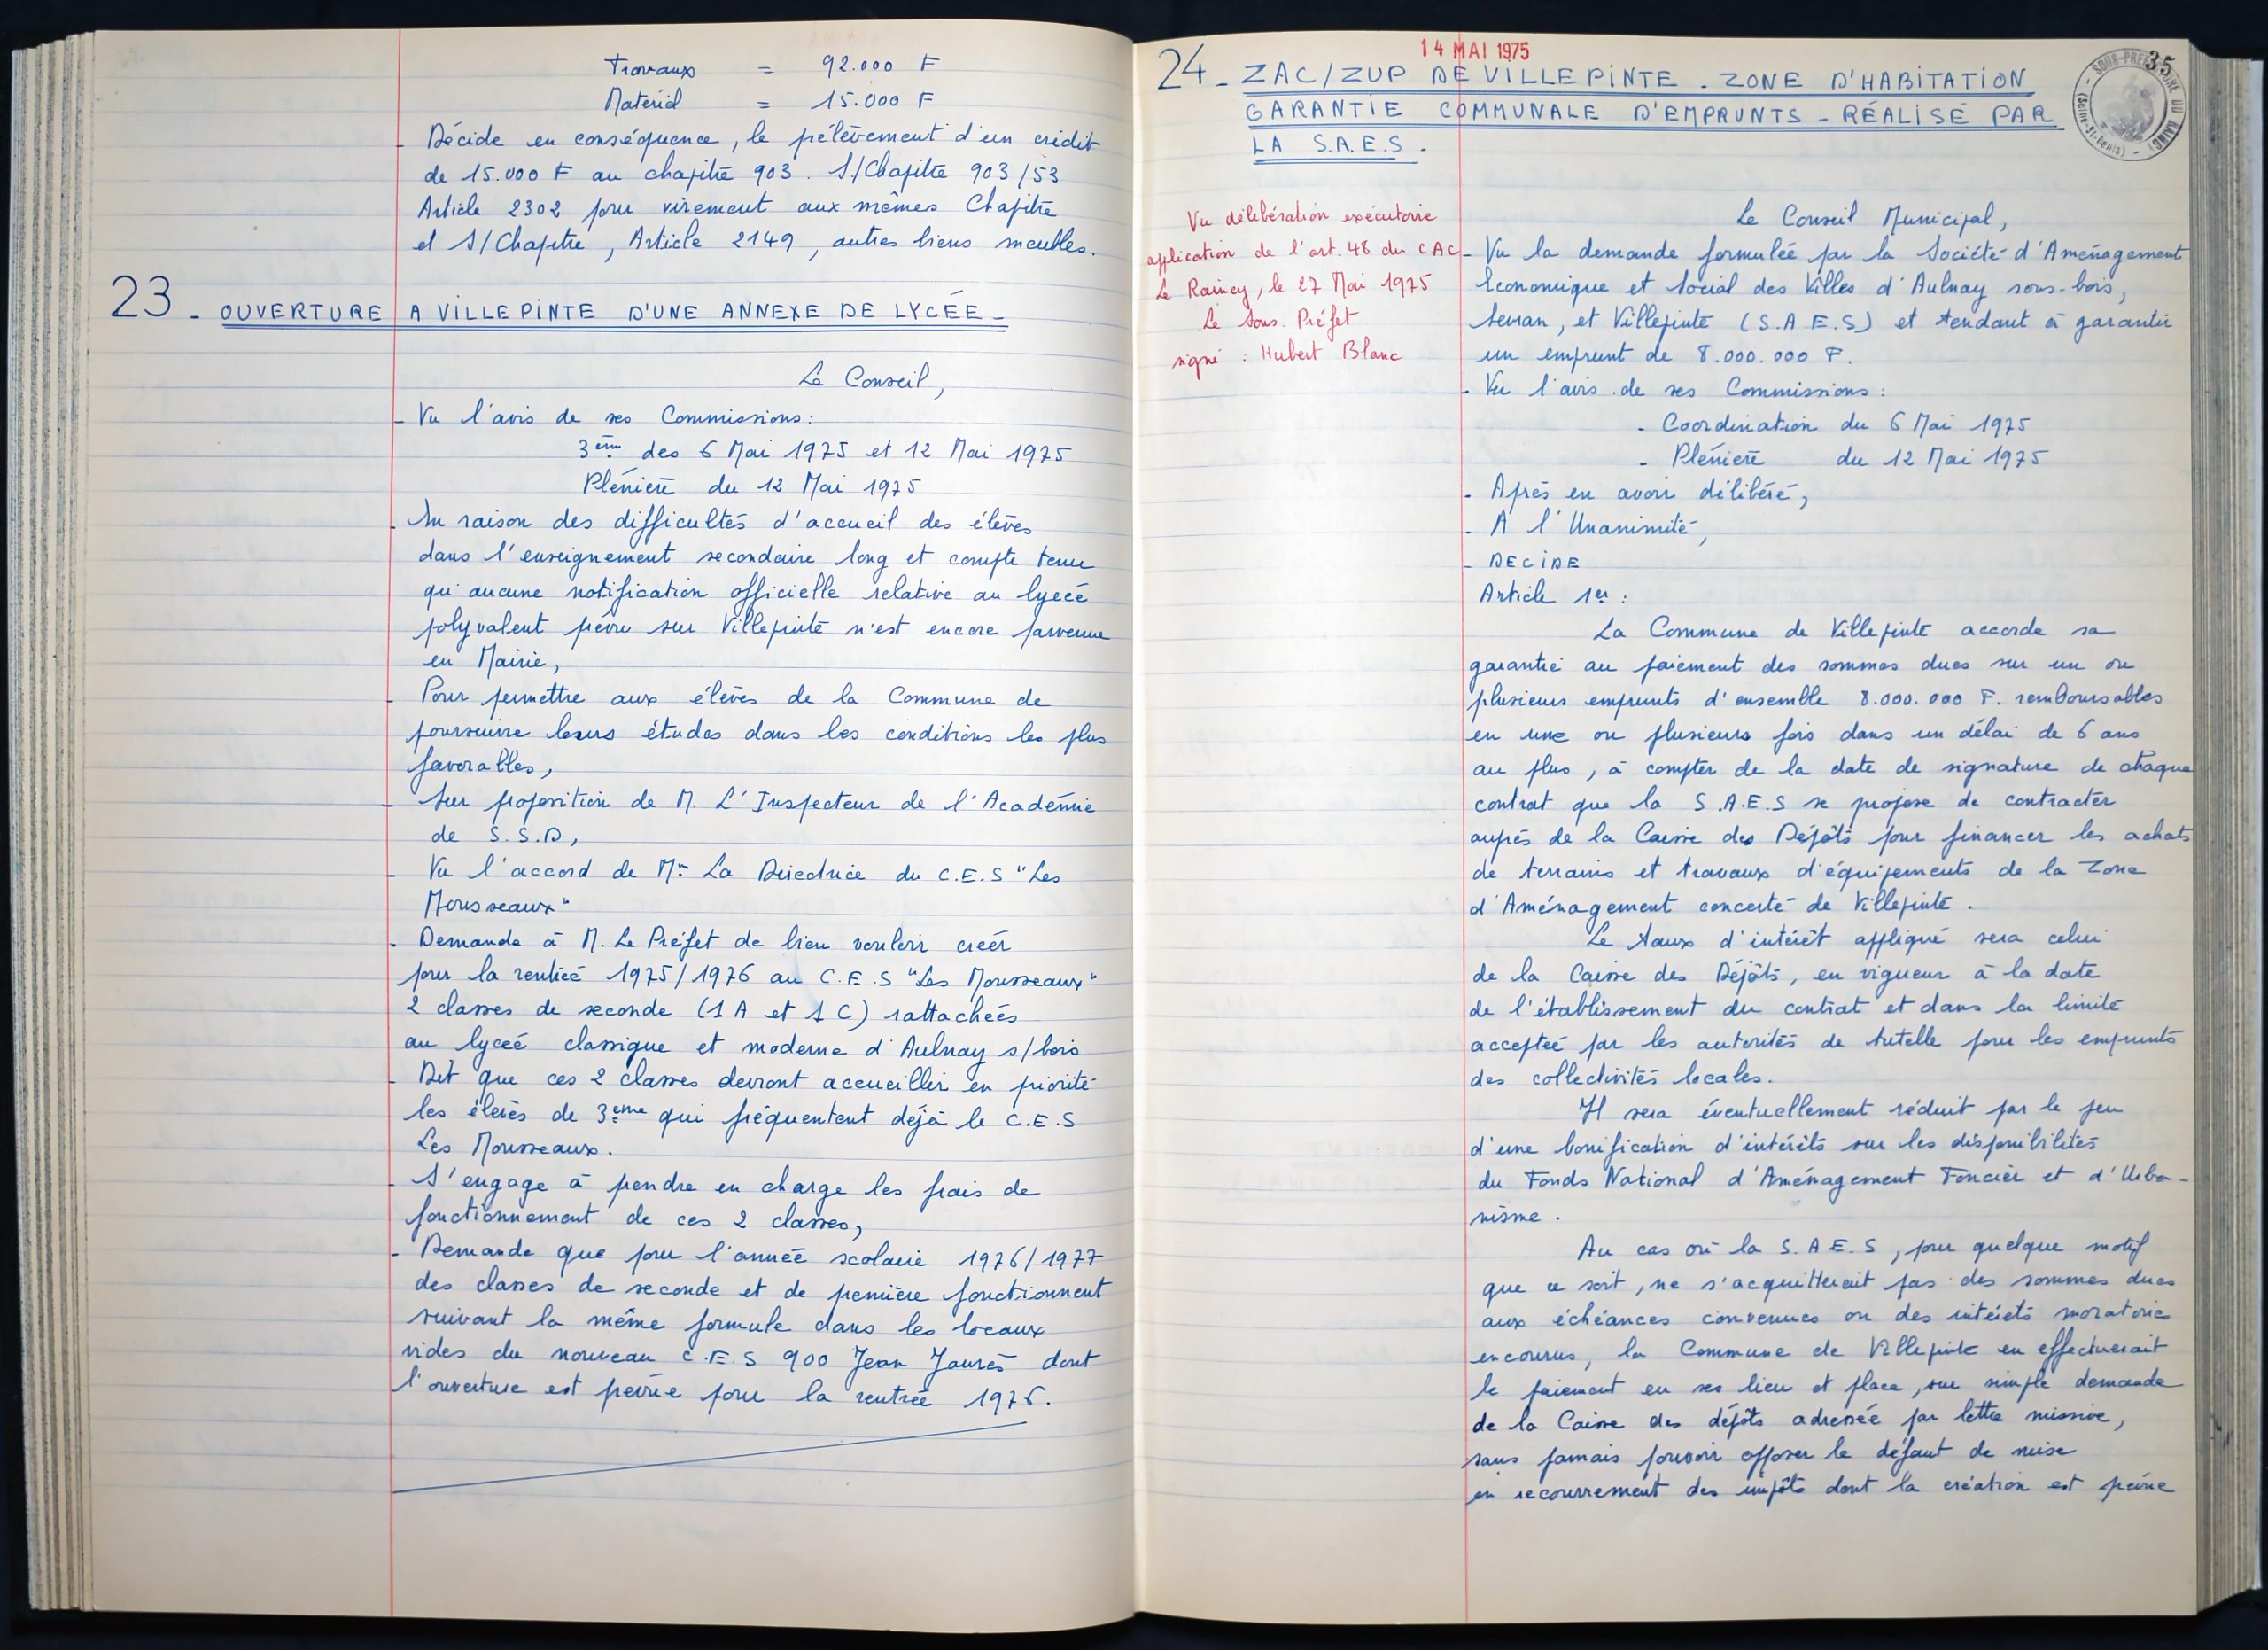 Travaux = 92.000 F
Matériel = 15.000 F
- Décide en conséquence, le prélèvement d'un crédit
de 15.000 F au chapitre 903. S/Chapitre 903/53
Article 2302 pour virement aux mêmes Chapitre
et S/Chapitre, Article 2149, autres biens meubles.
23 - OUVERTURE A VILLEPINTE D'UNE ANNEXE DE LYCÉE -
Le Conseil,
- Vu l'avis de ses Commissions:
3ème des 6 Mai 1975 et 12 Mai 1975
Plénière du 12 Mai 1975
- En raison des difficultés d'accueil des élèves
dans l'enseignement secondaire long et compte tenu
qu'aucune notification officielle relative au lycée
polyvalent prévu sur Villepinte n'est encore parvenue
en Mairie,
- Pour permettre aux élèves de la Commune de
poursuivre leurs études dans les conditions les plus
favorables,
- Sur proposition de M. L'Inspecteur de l'Académie
de S.S.D,
- Vu l'accord de Me La Directrice du C.E.S "Les
Mousseaux"
- Demande à M. Le Préfet de bien vouloir créer
pour la rentrée 1975/1976 au C.E.S "Les Mousseaux"
2 classes de seconde (1 A et 1 C) rattachées
au lycée classique et moderne d'Aulnay s/bois
- Dit que ces 2 classes devront accueillir en priorité
les élèves de 3ème qui fréquentent déjà le C.E.S
Les Mousseaux.
- S'engage à prendre en charge les frais de
fonctionnement de ces 2 classes,
- Demande que pour l'année scolaire 1976/1977
des classes de seconde et de première fonctionnent
suivant la même formule dans les locaux
vides du nouveau C.E.S 900 Jean Jaurès dont
l'ouverture est prévue pour la rentrée 1976.
14 MAI 1975
35
SOUS-PREFECTURE DU RAINCY - (Seine-St-Denis) -
24 - ZAC/ZUP DE VILLEPINTE . ZONE D'HABITATION
GARANTIE COMMUNALE D'EMPRUNTS - RÉALISÉ PAR
LA S.A.E.S.
Vu délibération exécutoire
application de l'art. 48 du CAC
Le Raincy, le 27 Mai 1975
Le Sous. Préfet
signé : Hubert Blanc
Le Conseil Municipal,
- Vu la demande formulée par la Société d'Aménagement
Economique et Social des Villes d'Aulnay sous-bois,
Sevran, et Villepinte (S.A.E.S) et tendant à garantir
un emprunt de 8.000.000 F.
- Vu l'avis de ses Commissions:
- Coordination du 6 Mai 1975
- Plénière du 12 Mai 1975
- Après en avoir délibéré,
- A l'Unanimité,
- DECIDE
Article 1er :
La Commune de Villepinte accorde sa
garantie au paiement des sommes dues sur un ou
plusieurs emprunts d'ensemble 8.000.000 F. remboursables
en une ou plusieurs fois dans un délai de 6 ans
au plus, à compter de la date de signature de chaque
contrat que la S.A.E.S se propose de contracter
auprès de la Caisse des Dépôts pour financer les achats
de terrains et travaux d'équipements de la Zone
d'Aménagement concerté de Villepinte.
Le taux d'intérêt appliqué sera celui
de la Caisse des Dépôts, en vigueur à la date
de l'établissement du contrat et dans la limite
acceptée par les autorités de tutelle pour les emprunts
des collectivités locales.
Il sera éventuellement réduit par le jeu
d'une bonification d'intérêts sur les disponibilités
du Fonds National d'Aménagement Foncier et d'Urba-
nisme.
Au cas où la S.A.E.S, pour quelque motif
que ce soit, ne s'acquitterait pas des sommes dues
aux échéances convenues ou des intérêts moratoires
encourus, la Commune de Villepinte en effectuerait
le paiement en ses lieu et place, sur simple demande
de la Caisse des dépôts adressée par lettre missive,
sans jamais pouvoir opposer le défaut de mise
en recouvrement des impôts dont la création est prévue